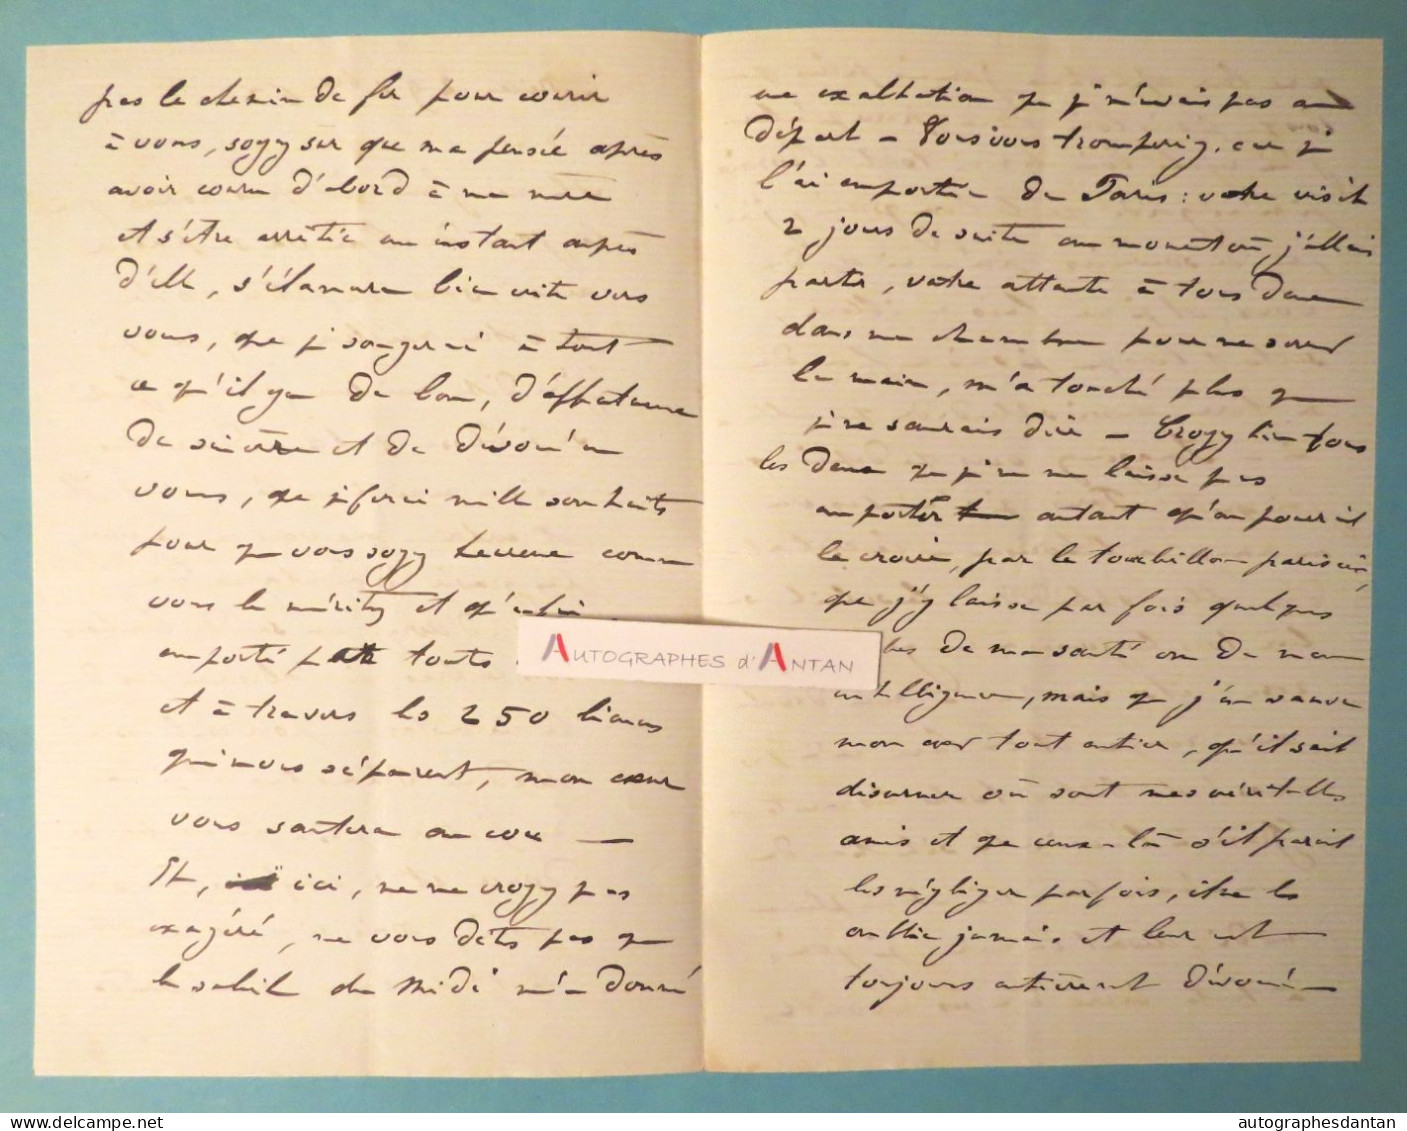 pas le chemin de fer pour courir
à vous, soyez sur que ma pensée après
avoir couru d'abord à ma mère
et s'être arrêtée un instant auprès
d'elle, s'élancera bien vite vers
vous, que je songerai à tout
ce qu'il y a de bon, d'affectueux
de sincère et de dévoué en
vous, que je ferai mille souhaits
pour que vous soyez heureux comme
vous le méritez et qu'enfin
emporté par toute
et à travers les 250 lieues
qui nous séparent, mon cœur
vous sautera au cou —
Et, ici, ne me croyez pas
exagéré, ne vous dites pas que
le soleil du Midi m'a donné
une exaltation que je n'avais pas au
départ — Vous vous tromperiez, car je
l'ai emportée de Paris : votre visite
2 jours de suite au moment où j'allais
partir, votre attente à tous deux
dans ma chambre pour me serrer
la main, m'a touché plus que
je ne saurais dire — Croyez bien tous
les deux que je ne me laisse pas
emporter autant qu'on pourrait
le croire, par le tourbillon parisien,
que j'y laisse parfois quelques
de ma santé ou de mon
intelligence, mais que j'en sauve
mon cœur tout entier, qu'il sait
discerner où sont mes véritables
amis et que ceux-là s'il parait
les négliger parfois, il ne les
oublie jamais et leur est
toujours entièrement dévoué —
AUTOGRAPHES d'ANTAN
autographesdantan